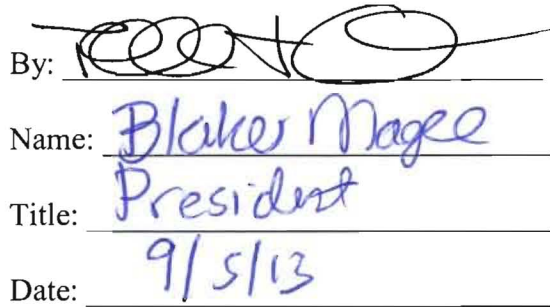 By:
Name: Blake Magee
Title: President
Date: 9/5/13